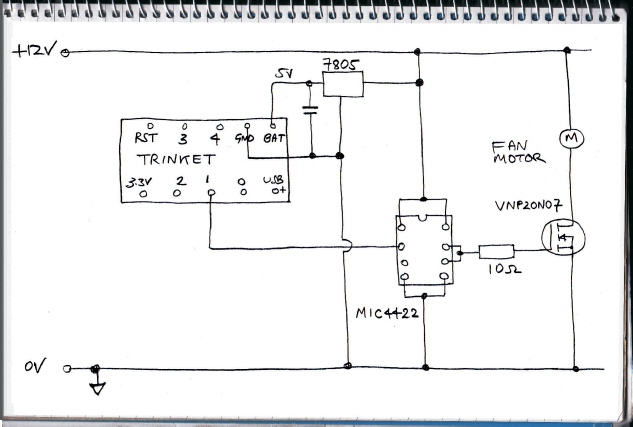 +12V
7805
5V
RST 3 4 GND BAT
TRINKET
3.3V 2 1 0 USB
+
M
FAN
MOTOR
VNP20N07
10Ω
MIC4422
0V